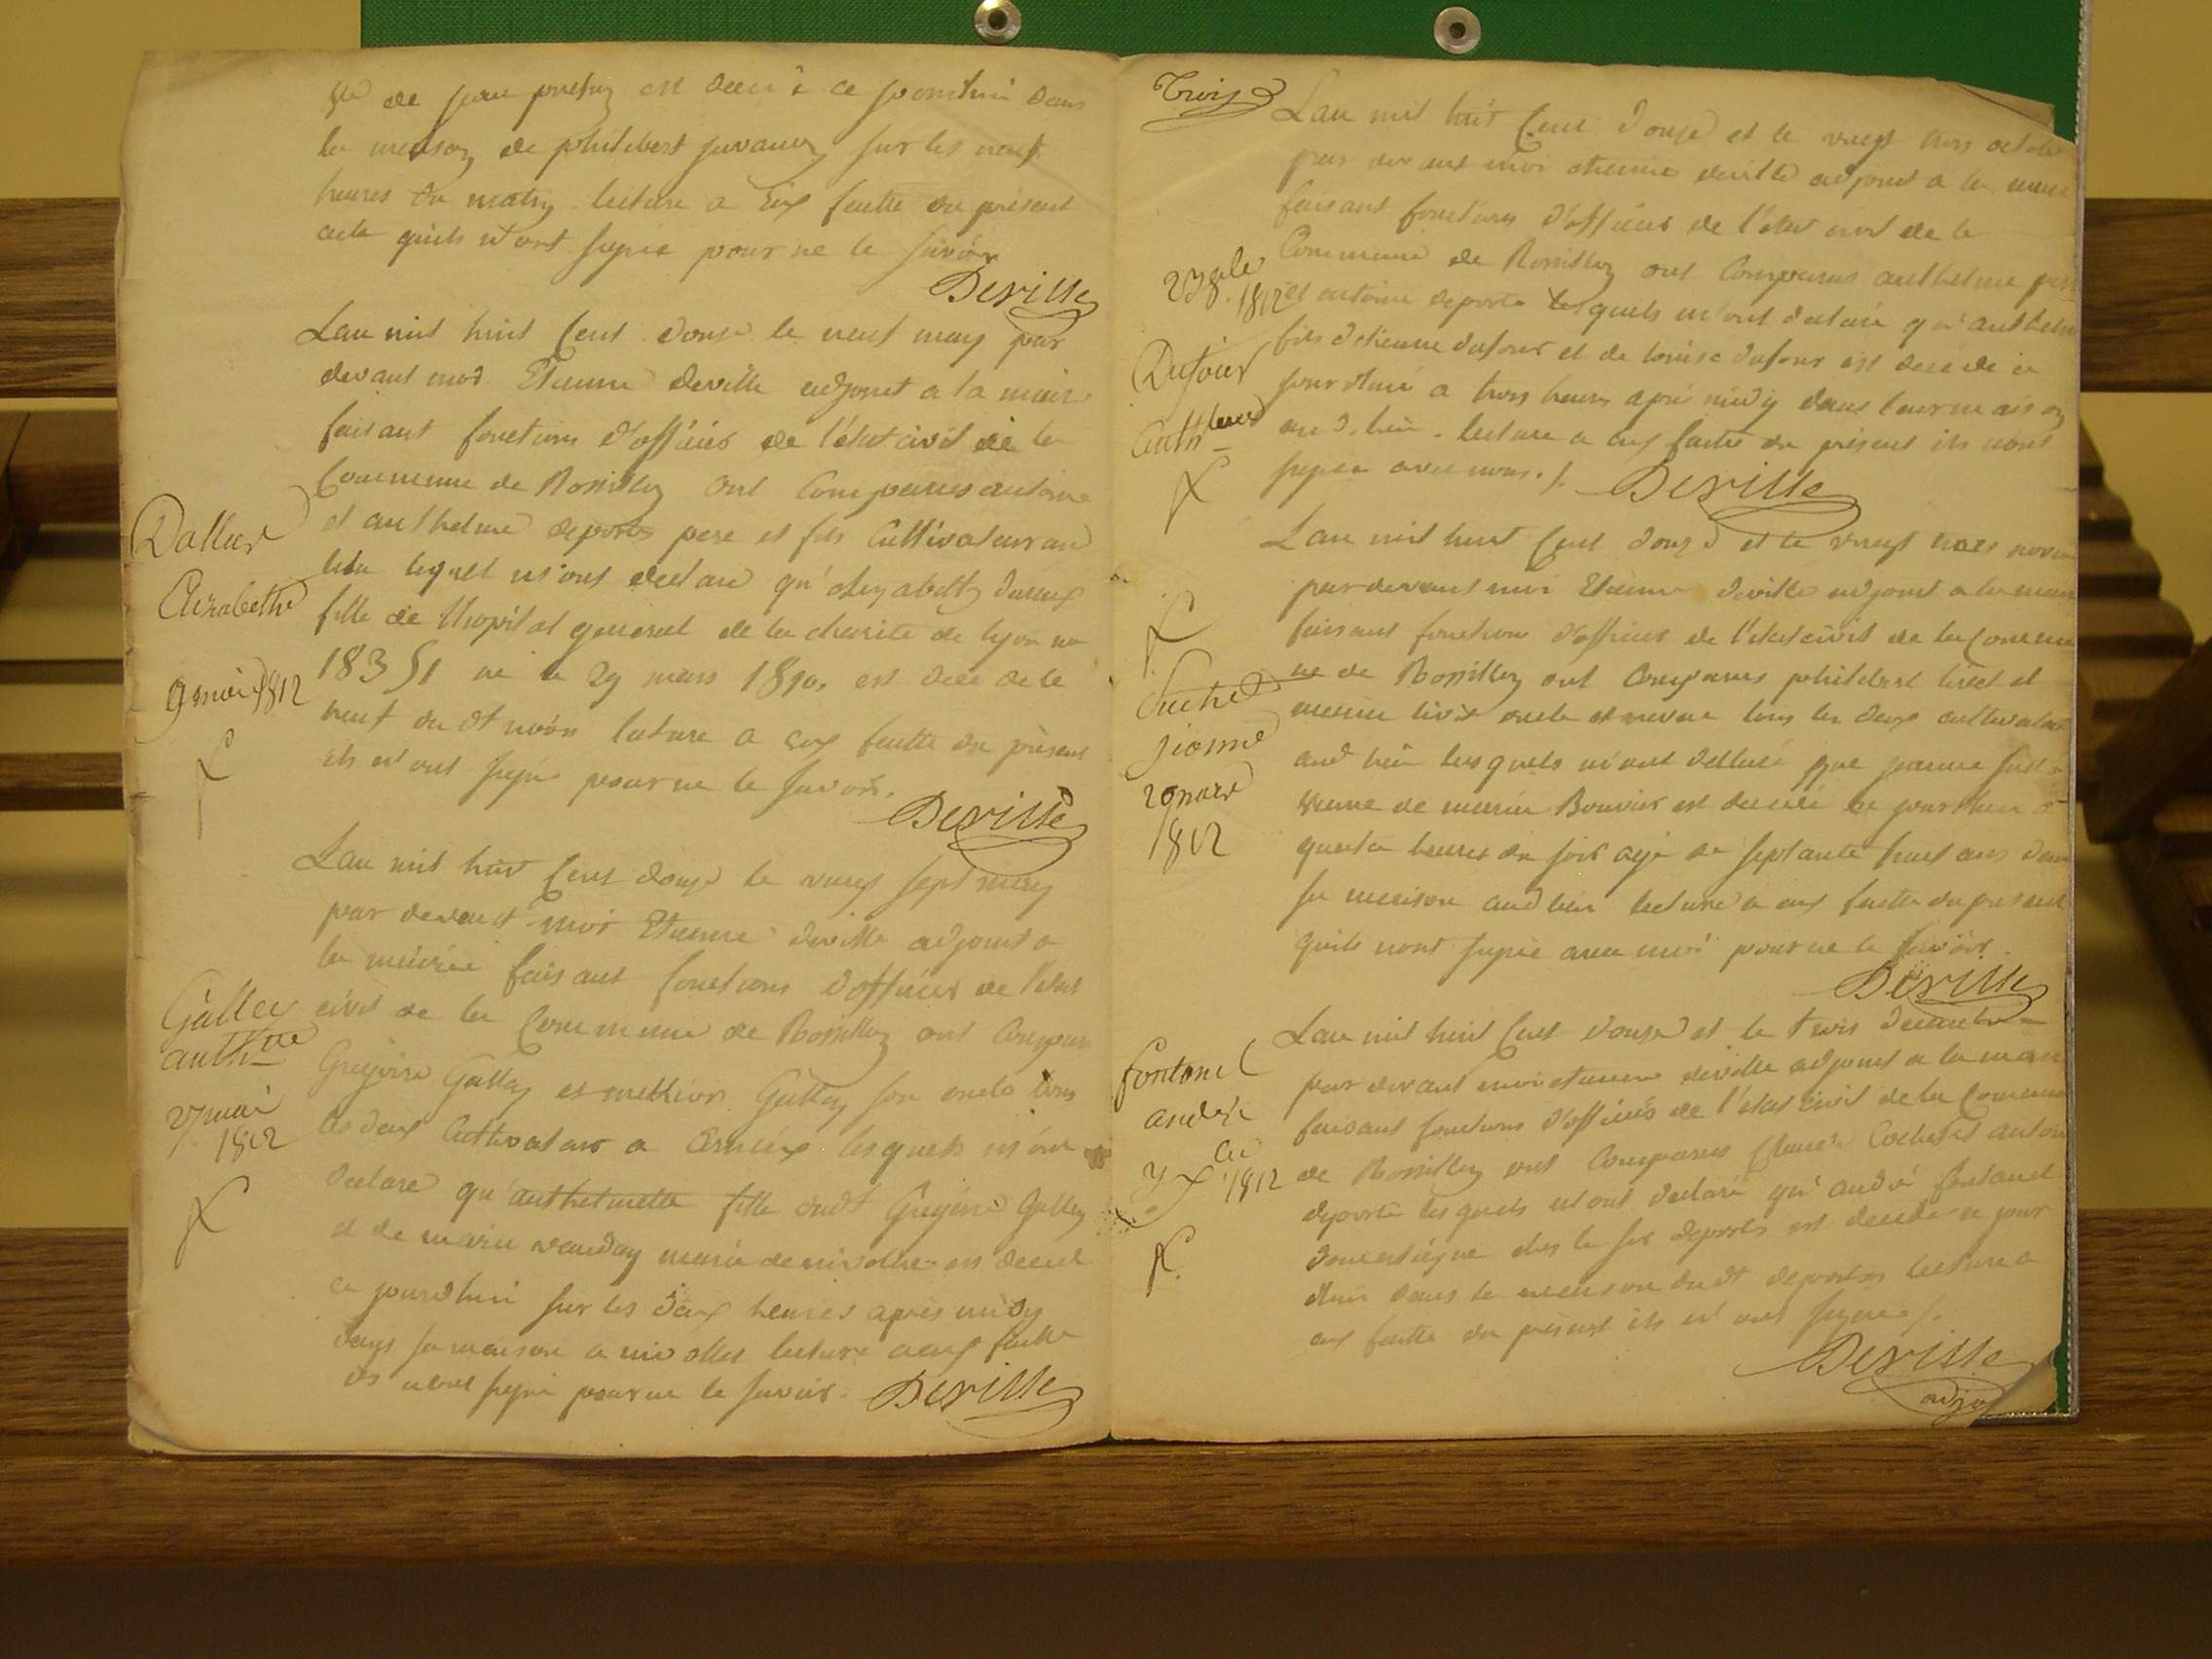 de jean est decede ce jourdhui dans
la maison de philibert juvanon sur les neuf
heures du matin lecture a eux faitte du présent
acte quils n'ont signé pour ne le savoir
Deville
Lan mil huit Cent douze le neuf may par
devant moi Etienne deville adjoint a la mairie
faisant fonctions d'officier de l'état civil de la
Commune de Rossillon ont Comparus antoine
et anthelme deporte pere et fils Cultivateur au
lieu lequel m'ont declaré qu'
fille de lhopital general de la charité de lyon no
18351 né le 29 mars 1810. est decede le
neuf du dt mois lecture a eux faitte du présent
ils n'ont signé pour ne le savoir.
Deville
Dallier
Elizabethe
9 mai 1812
Lan mil huit Cent douze le vingt sept may
par devant moi Etienne deville adjoint a
la mairie faisant fonctions d'officier de l'état
civil de la Commune de Rossillon ont Comparu
Gregoire Gallay et Gallay son oncle tous
les deux Cultivateur a lesquels m'ont
declaré qu'anthelmette fille dudt Gregoire Gallay
et de marie est decede
ce jourdhui sur les deux heures après midy
dans sa maison a lecture a eux faitte
ils n'ont signé pour ne le savoir. Deville
Galley
anth.me
27 mai
1812
Trois
Lan mil huit Cent douze et le vingt trois octobre
par devant moi etienne deville adjoint a la mairie
faisant fonctions d'officier de l'état civil de la
Commune de Rossillon ont Comparus anthelme
et antoine deporte lesquels m'ont declaré qu'anthelme
fils detienne dufour et de louise dufour est decede ce
jourdhui a trois heures après midy dans leur maison
aud. lieu. lecture a eux faitte du présent ils n'ont
signé avec nous ./. Deville
23 8bre 1812
Dufour
Anthelme
Lan mil huit Cent douze et le vingt novem
par devant moi Etienne deville adjoint a la mairie
faisant fonction d'officier de l'état civil de la Commu
ne de Rossillon ont Comparus philibert livet et
livet oncle et neveu tous les deux cultivateur
aud lieu lesquels m'ont declaré que jeanne
veuve de Bouvier est decede ce jourdhui a
quatre heures du soir agé de septante huit ans dans
sa maison aud lieu lecture a eux faitte du présent
quils n'ont signé avec moi pour ne le savoir.
Deville
1812
Lan mil huit Cent douze et le trois decembre
par devant moi etienne deville adjoint a la mairie
faisant fonctions d'officier de l'état civil de la Commune
de Rossillon ont Comparus Claude Cochet et antoine
deporte lesquels m'ont declaré qu'andré fontanel
domestique ches le sr deporte est decede ce jour
dhui dans la maison dudt deporte lecture a
eux faitte du présent ils n'ont signé ./.
Deville
adjt
fontanel
andré
1812